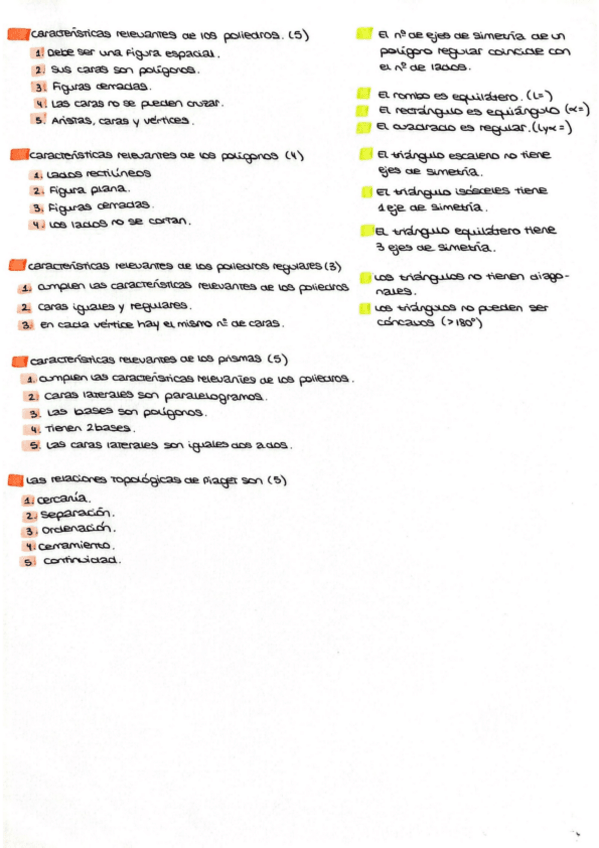 Características relevantes de los poliedros. (5)
1. Debe ser una figura espacial.
2. Sus caras son polígonos.
3. Figuras cerradas.
4. Las caras no se pueden cruzar.
5. Aristas, caras y vértices.
Características relevantes de los polígonos (4)
1. Lados rectilíneos
2. Figura plana.
3. Figuras cerradas.
4. Los lados no se cortan.
Características relevantes de los poliedros regulares (3)
1. Cumplen las características relevantes de los poliedros
2. Caras iguales y regulares.
3. en cada vértice hay el mismo nº de caras.
Características relevantes de los prismas (5)
1. Cumplen las características relevantes de los poliedros.
2. Caras laterales son paralelogramos.
3. Las bases son polígonos.
4. Tienen 2 bases.
5. Las caras laterales son iguales dos a dos.
Las relaciones topológicas de Piaget son (5)
1. Cercanía.
2. Separación.
3. Ordenación.
4. Cerramiento.
5. Continuidad.
El nº de ejes de simetría de un
polígono regular coincide con
el nº de lados.
El rombo es equilátero. (L=)
El rectángulo es equiángulo (α=)
El cuadrado es regular. (L y α=)
El triángulo escaleno no tiene
ejes de simetría.
El triángulo isósceles tiene
1 eje de simetría.
El triángulo equilátero tiene
3 ejes de simetría.
Los triángulos no tienen diago-
nales.
Los triángulos no pueden ser
cóncavos (>180º)